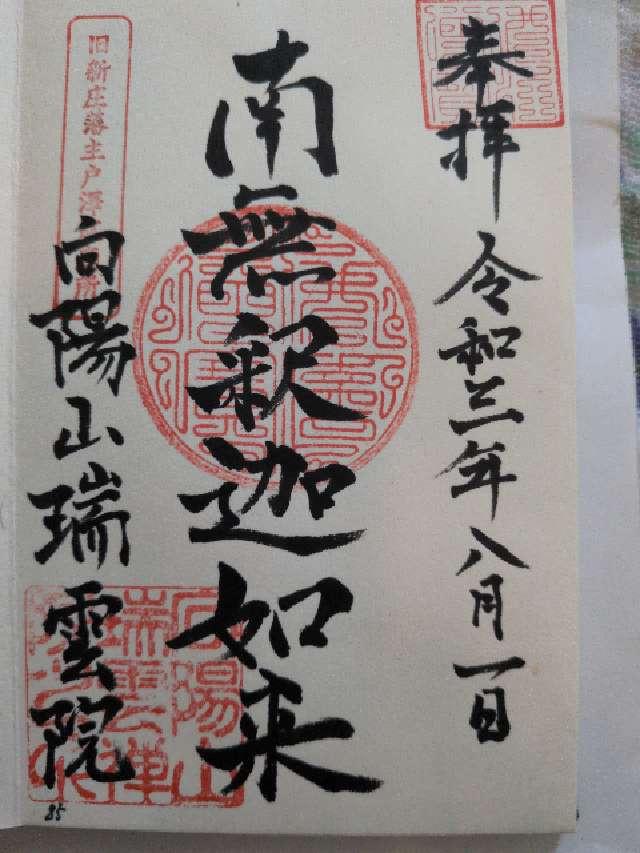 奉拝
令和三年八月一日
南無釈迦如来
旧新庄藩主戸澤
所
向陽山瑞雲院
85